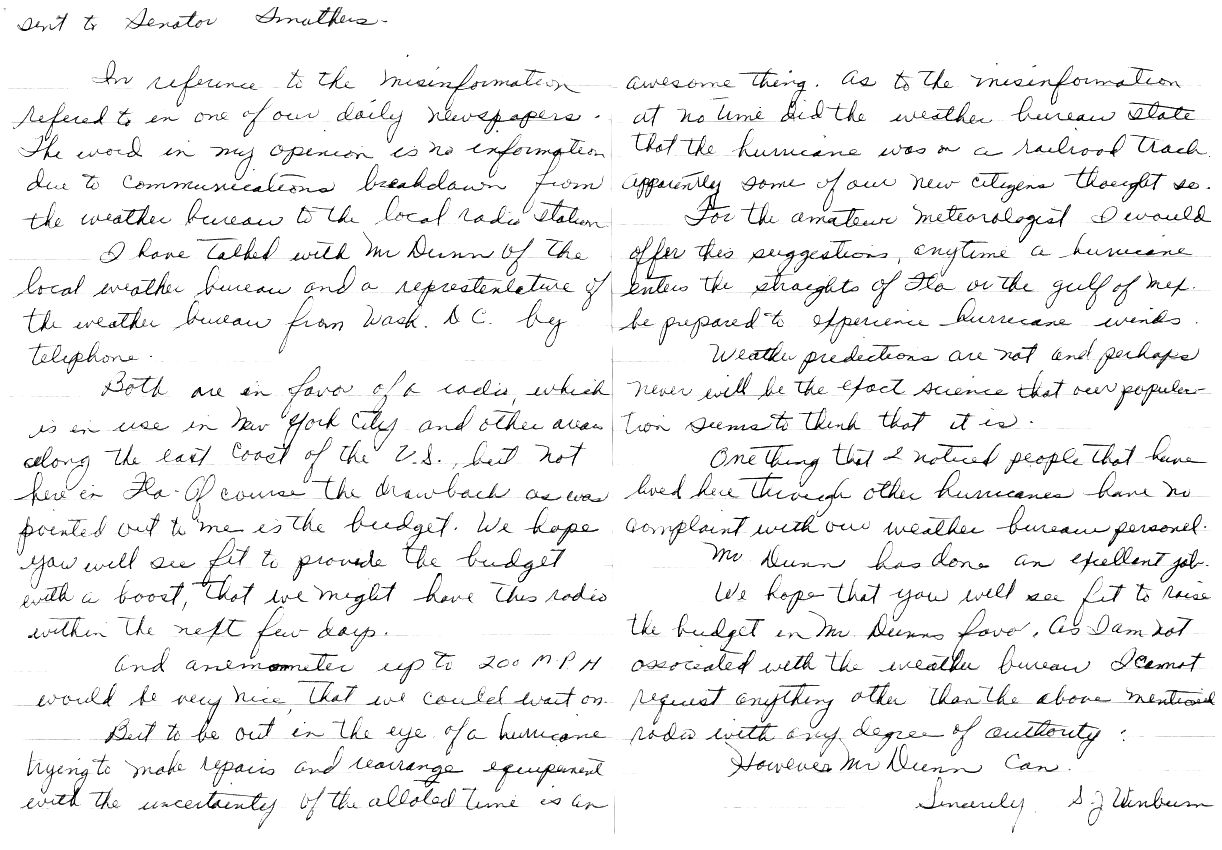 sent to Senator Smathers.
In reference to the misinformation
refered to in one of our daily newspapers.
The word in my opinion is no information
due to communications breakdown from
the weather bureau to the local radio station
I have talked with Mr Dunn of the
local weather bureau and a representative of
the weather bureau from Wash. D C. by
telephone.
Both are in favor of a radio, which
is in use in New York City and other areas
along the east coast of the U.S., but not
here in Fla. Of course the drawback as was
pointed out to me is the budget. We hope
you will see fit to provide the budget
with a boost, that we might have this radio
within the next few days.
And anemometer up to 200 M.P.H
would be very nice, that we could wait on.
But to be out in the eye of a hurricane
trying to make repairs and rearrange equipment
with the uncertainty of the alloted time is an
awesome thing. As to the misinformation
at no time did the weather bureau state
that the hurricane was on a railroad track.
Apparently some of our new citizens thought so.
For the amateur meteorologist I would
offer this suggestions, anytime a hurricane
enters the straights of Fla or the gulf of Mex.
be prepared to experience hurricane winds.
Weather predictions are not and perhaps
never will be the exact science that our popula-
tion seems to think that it is.
One thing that I noticed people that have
lived here through other hurricanes have no
complaint with our weather bureau personel.
Mr Dunn has done an excellant job.
We hope that you will see fit to raise
the budget in Mr. Dunns favor. As I am not
associated with the weather bureau I cannot
request anything other than the above mentioned
radio with any degree of authority.
However Mr Dunn can.
Sincerely S. J Winburn